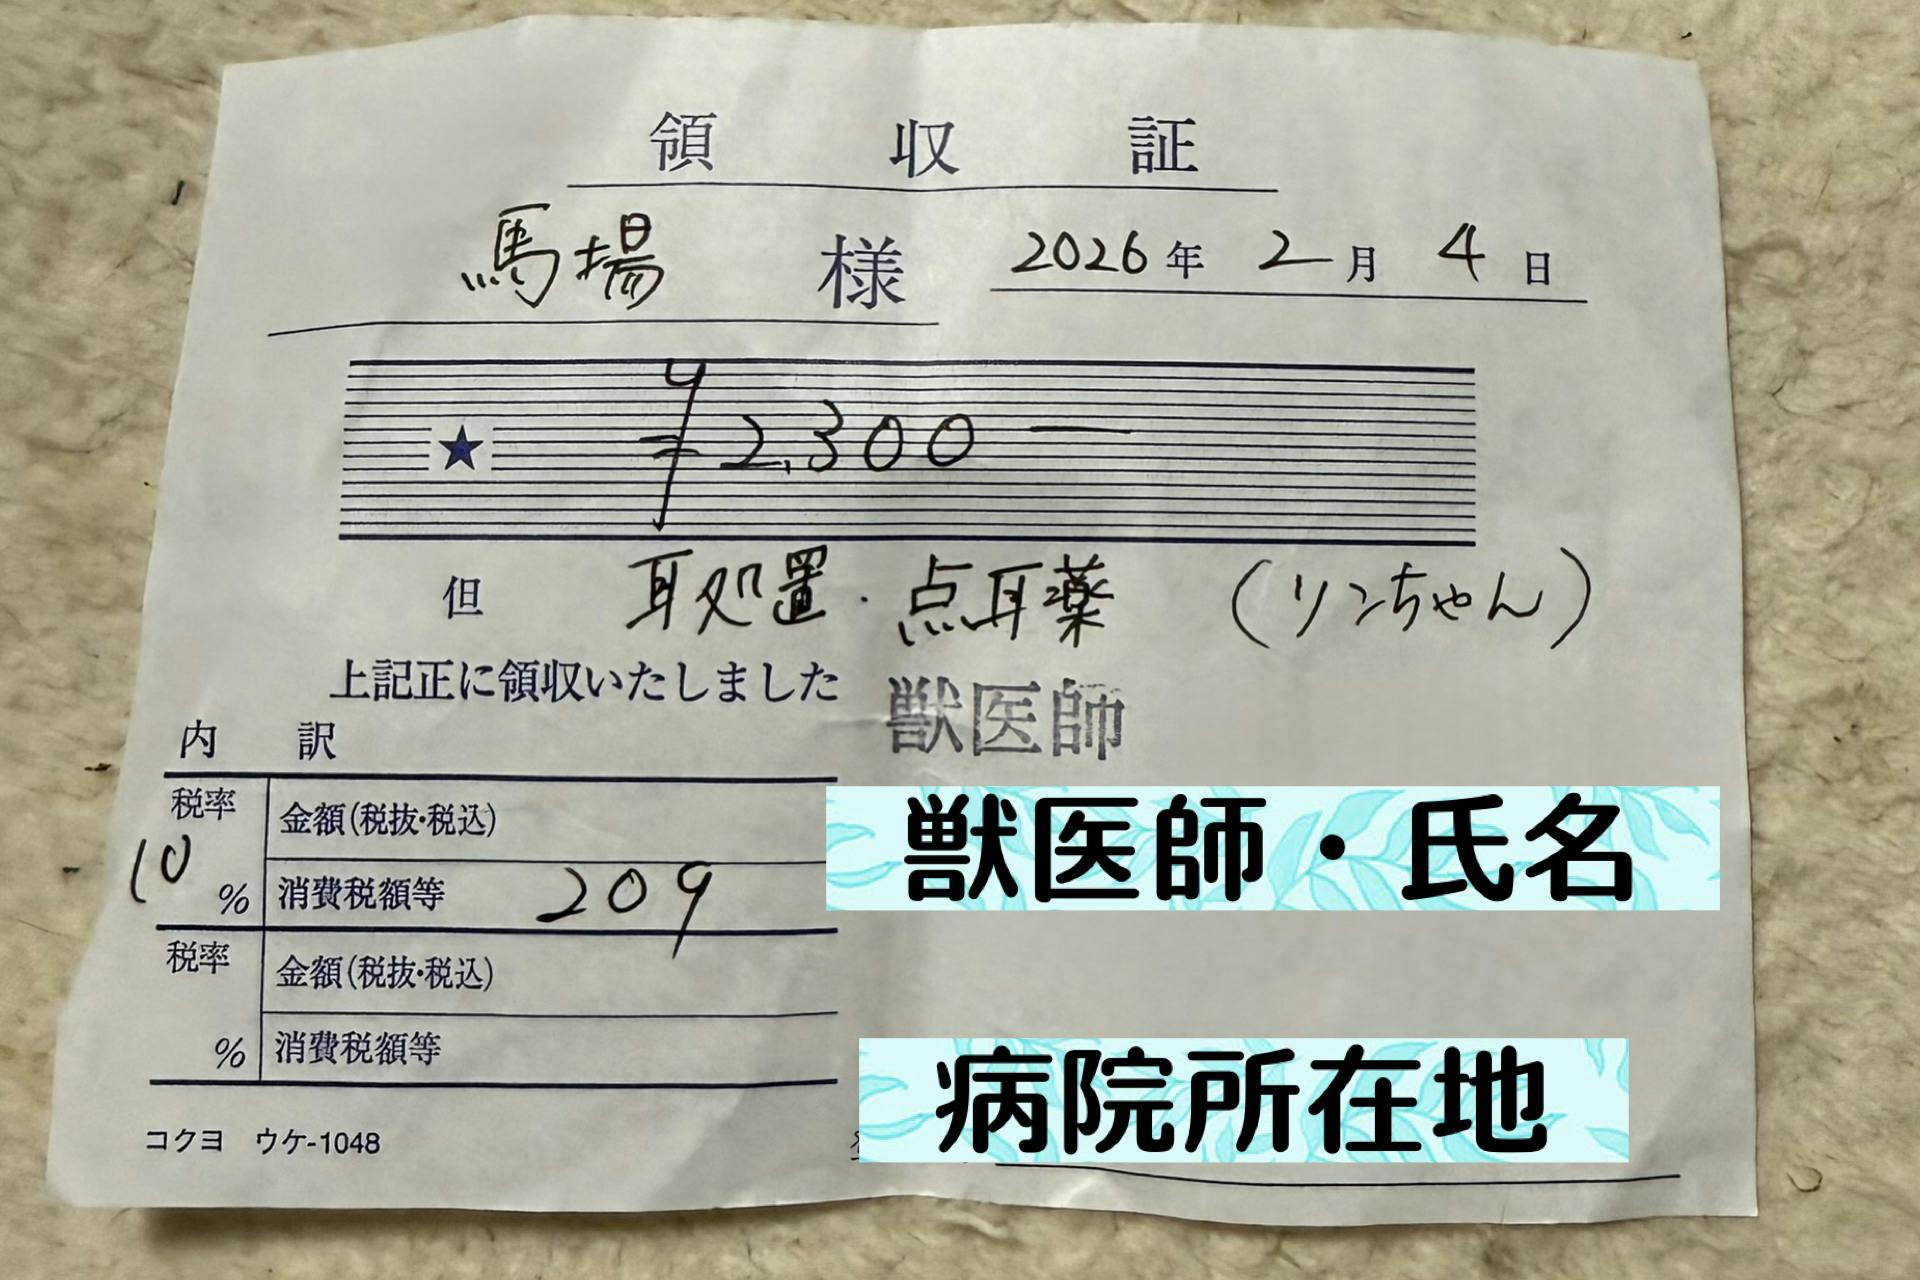 領収証
馬場 様 2026年 2月 4日
★ ¥2,300—
但 耳処置・点耳薬 (リンちゃん)
上記正に領収いたしました
獣医師
内訳
税率 10 %
金額(税抜・税込)
消費税額等 209
税率 %
金額(税抜・税込)
消費税額等
獣医師・氏名
病院所在地
コクヨ ウケ-1048